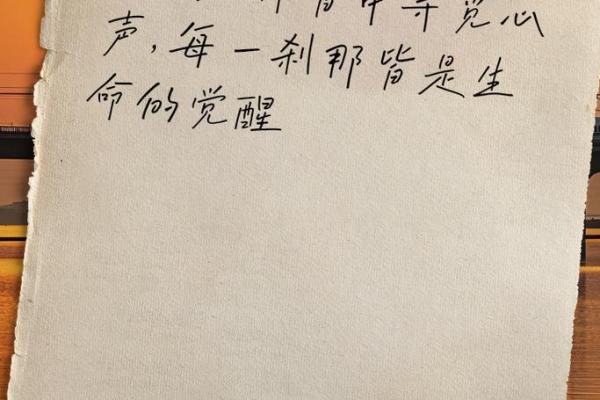 中寻觅心
声，每一刹那皆是生
命的觉醒